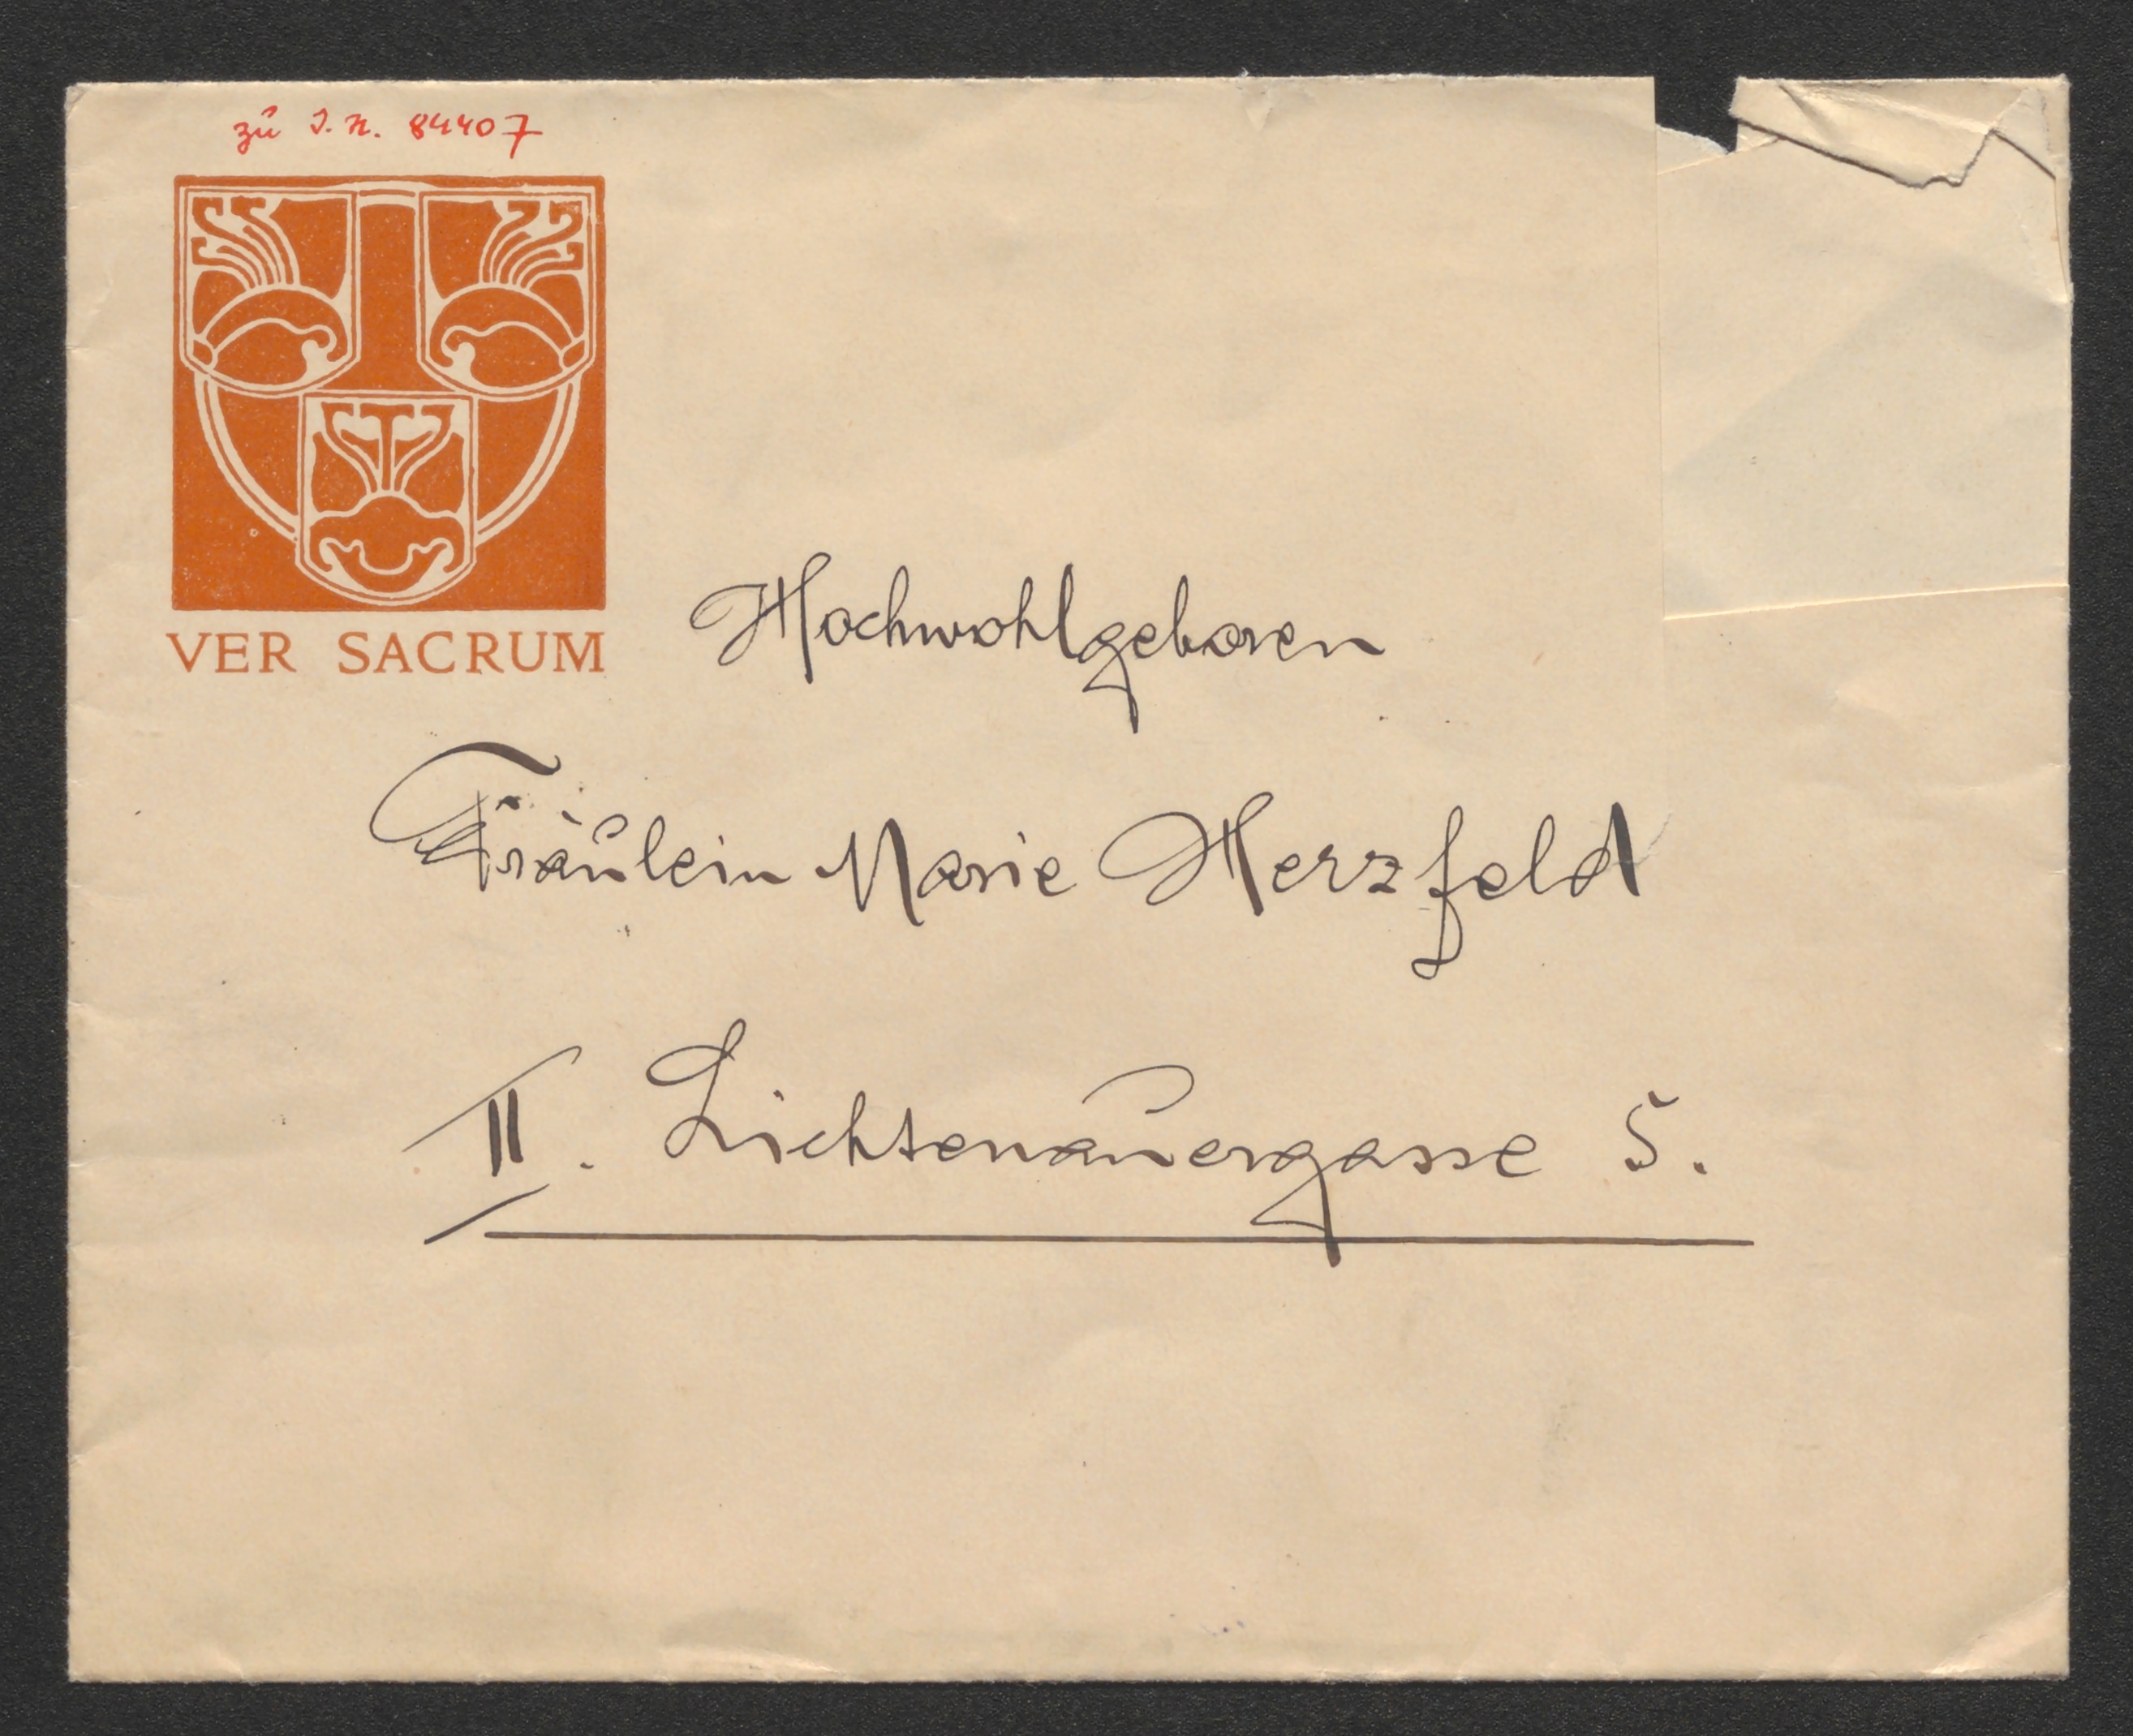 zu I. N. 84407
VER SACRUM
Hochwohlgeboren
Fräulein Marie Herzfeld
II. Lichtenauergasse 5.